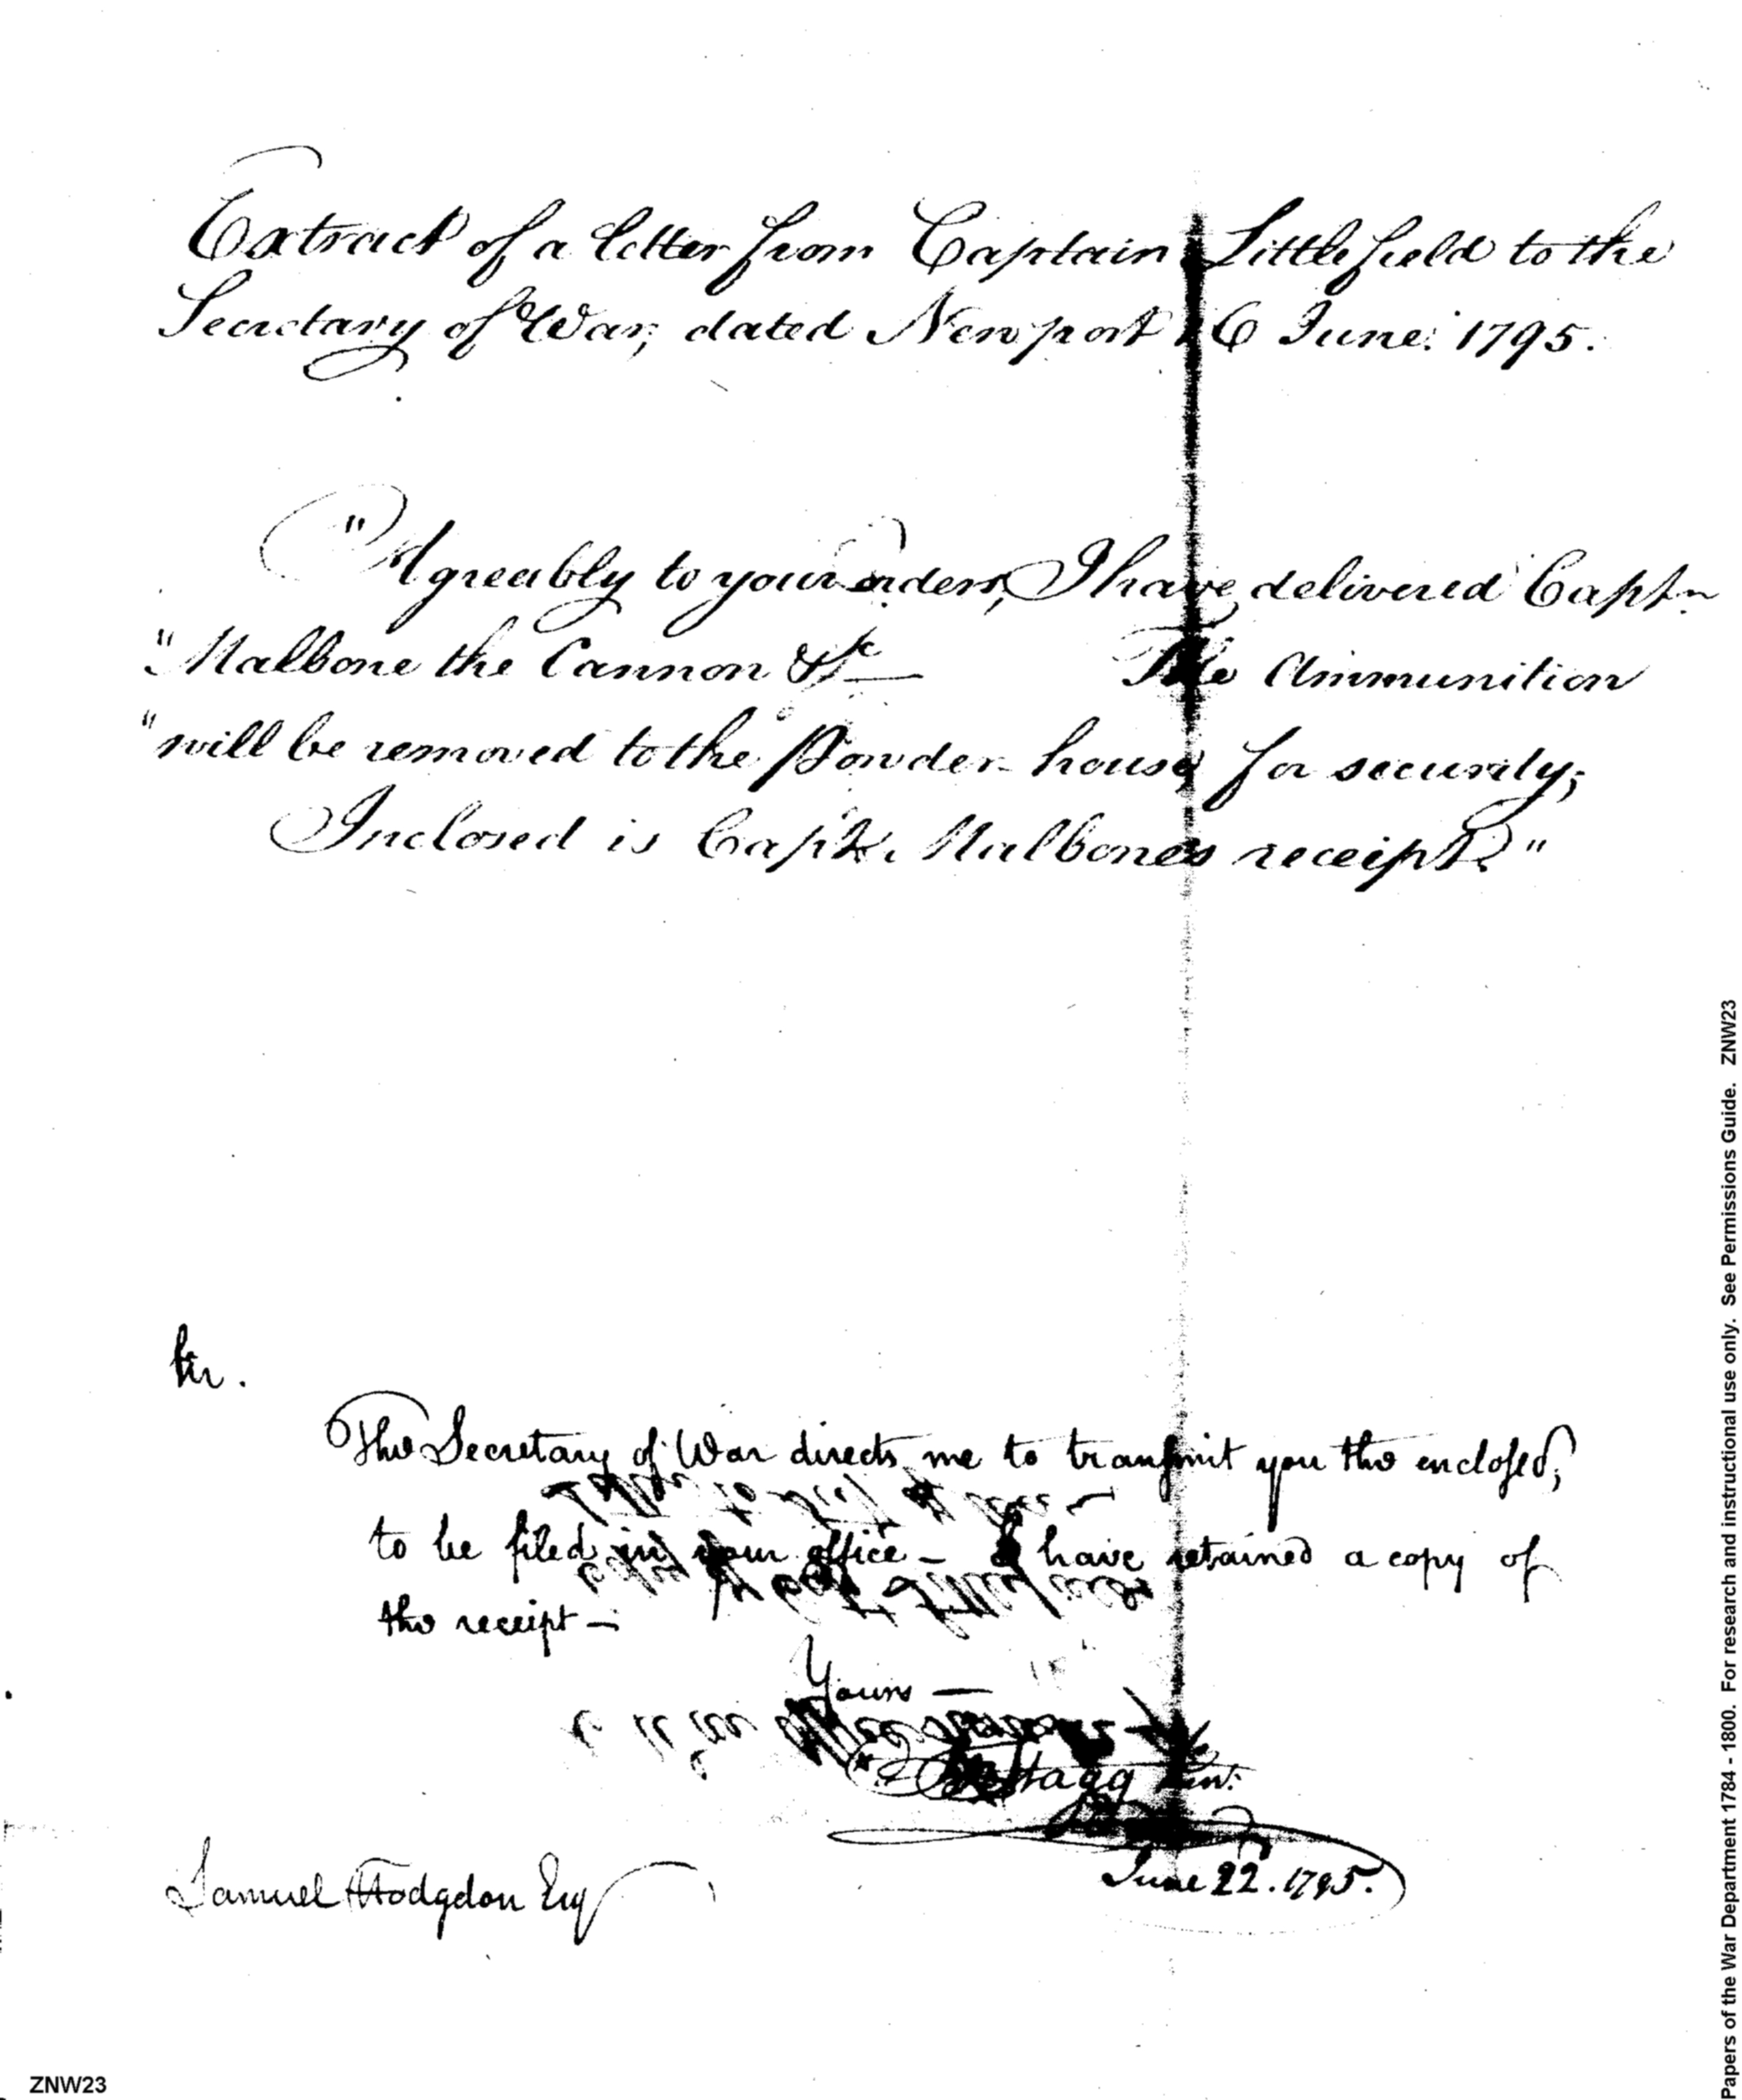 Extract of a letter from Captain Littlefield to the
Secretary of War, dated Newport 16 June 1795.
"Agreably to your orders, I have delivered Captn
"Malbone the Cannon &c — The Ammunition
"will be removed to the Powder-house for security;
Inclosed is Capt. Malbones receipt."
Sir.
The Secretary of War directs me to transmit you the enclosed,
to be filed in your office — I have retained a copy of
the receipt —
Yours —
Stagg Junr.
June 22. 1795.
Samuel Hodgdon Esq
ZNW23
Papers of the War Department 1784 - 1800. For research and instructional use only. See Permissions Guide. ZNW23